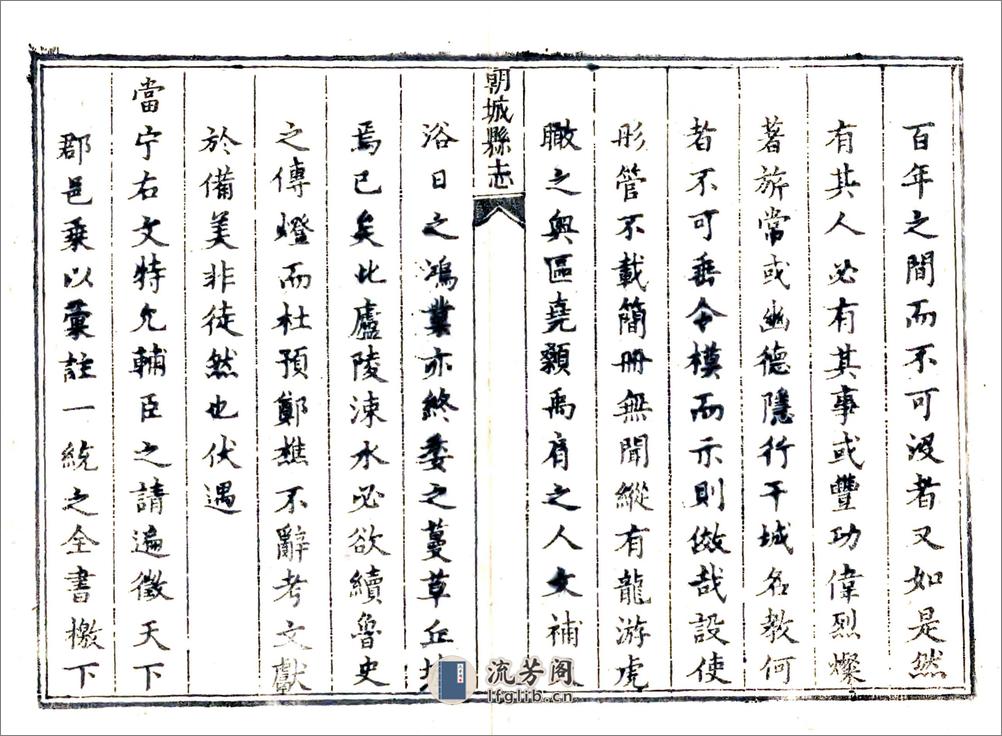 百年之間而不可沒者又如是然
有其人必有其事或豐功偉烈燦
著旂常或幽德隱行干城名教何
者不可垂令模而示則傚哉設使
彤管不載簡冊無聞縱有龍游虎
瞰之奧區堯顙禹肩之人文補
朝城縣志
浴日之鴻業亦終委之蔓草丘
焉已矣此廬陵涑水必欲續魯史
之傳燈而杜預鄭樵不辭考文獻
於備美非徒然也伏遇
當宁右文特允輔臣之請遍徵天下
郡邑乘以彙註一統之全書檄下
流芳阁
lfglib.cn